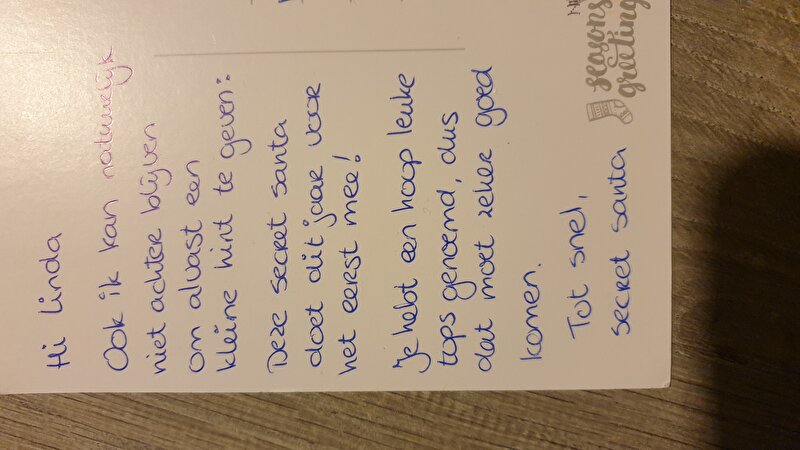 Hi Linda
Ook ik kan natuurlijk
niet achter blijven
om alvast een
kleine hint te geven:
Deze secret santa
doet dit jaar voor
het eerst mee!
Je hebt een hoop leuke
tips genoemd, dus
dat moet zeker goed
komen.
Tot snel,
secret santa
seasons
greetings